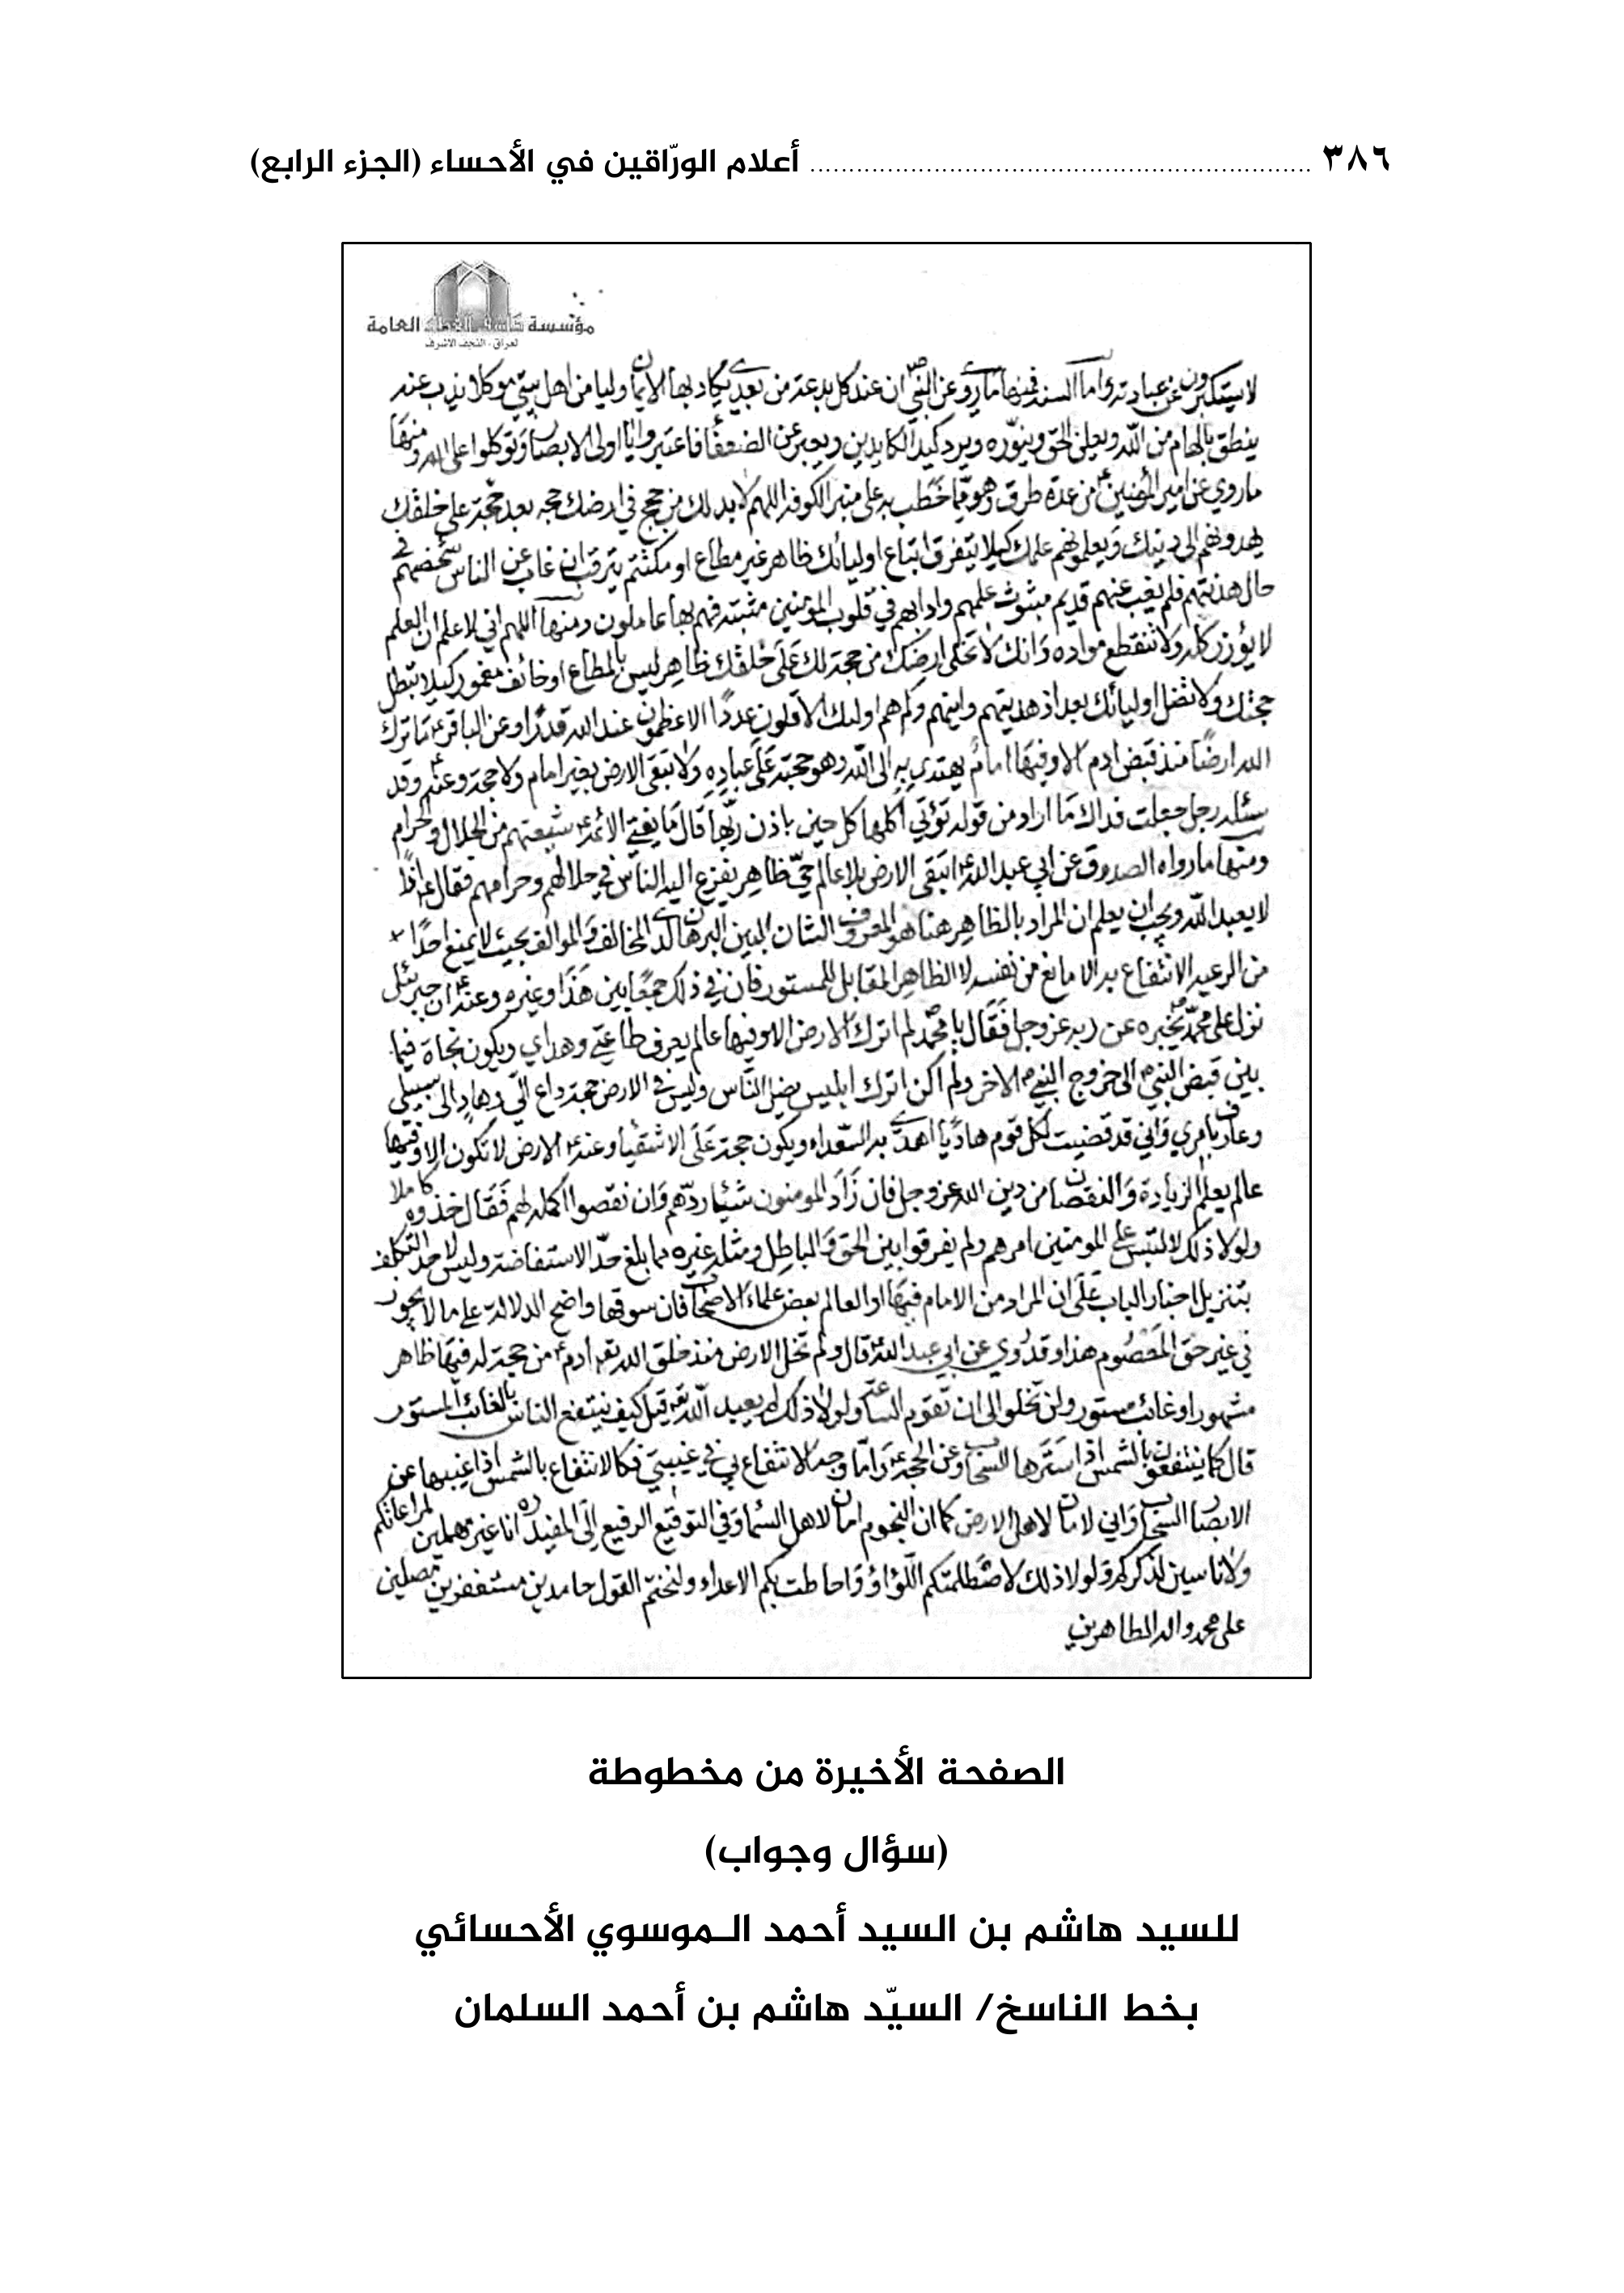 ٣٨٦ أعلام الورّاقين في الأحساء (الجزء الرابع)
مؤسسة كاشف الغطاء العامة
العراق - النجف الاشرف
لا يستكبرون عن عبادته واما السنه فمنها ما روي عن النبي ص ان عند كل بدعة من بعدي يكاد بها الايمان وليا من اهل بيتي موكلا يذب عنه
ينطق بالهام من الله ويعلن الحق وينوره ويرد كيد الكايدين ويعبر عن الضعفا فاعتبروا يا اولى الابصار وتوكلوا على الله ومنها
ما روي عن امير المؤمنين ع من عدة طرق وهو مما خطب به على منبر الكوفه اللهم لا بد لك من حجج في ارضك حجه بعد حجة على خلقك
يهدونهم الى دينك ويعلمونهم علمك كيلا يتفرق اتباع اوليائك ظاهر غير مطاع او مكتتم يترقب ان غاب عن الناس شخصهم في
حال هدنتهم فلم يغب عنهم قديم مبثوث علمهم وادابهم في قلوب المؤمنين مثبته فهم بها عاملون ومنها اللهم اني لاعلم ان العلم
لا يؤزر كله ولا تنقطع مواده وانك لا تخلى ارضك من حجة لك على خلقك ظاهر ليس بالمطاع او خائف مغمور كيلا تبطل
حججك ولا تضل اوليائك بعد اذ هديتهم واينهم وكم هم اولئك الاقلون عددًا الاعظمون عند الله قدرًا وعن الباقر ع ما ترك
الله ارضًا منذ قبض ادم الا وفيها امام يهتدي به الى الله وهو حجته على عباده ولا تبقى الارض بغير امام ولا حجة وعنه ع وقد
سئله رجل جعلت فداك ما اراد من قوله تؤتي اكلها كل حين باذن ربها قال ما يفتي الائمة ع شيعتهم من الحلال والحرام
ومنها ما رواه الصدوق عن ابي عبد الله ع اتبقى الارض بلا عالم حي ظاهر يفزع اليه الناس في حلالهم وحرامهم فقال ع اذًا
لا يعبد الله ويجب ان يعلم ان المراد بالظاهر هنا هو المعروف الشان البين البرهان لدى المخالف والموالف بحيث لا يمنع احدًا
من الرعيه الانتفاع به الا مانع من نفسه لا الظاهر المقابل للمستور فان في ذلك جمعًا بين هذا وغيره وعنه ع ان جبرئيل
نزل على محمد ص يخبره عن ربه عز وجل فقال يا محمد لم اترك الارض الا وفيها عالم يعرف طاعتي وهداي ويكون نجاة فيما
بين قبض النبي الى خروج النبي الاخر ولم اكن اترك ابليس يضل الناس وليس في الارض حجة وداع الي وهاد الى سبيلي
وعارف بامري واني قد قضيت لكل قوم هاديا اهدي به السعداء ويكون حجة على الاشقياء وعنه ع الارض لا تكون الا وفيها
عالم يعلم الزيادة والنقصان من دين الله عز وجل فان زاد المومنون شيئا ردهم وان نقصوا اكمله لهم فقال خذوه كاملا
ولولا ذلك لالتبس على المومنين امرهم ولم يفرقوا بين الحق والباطل ومثله غيره مما بلغ حد الاستفاضة وليس لاحد التكلف
بتنزيل اخبار الباب على ان المراد من الامام فيها او العالم بعض علماء الاصحاب فان سوقها واضح الدلالة على ما لا يجوز
في غير حق المعصوم هذا وقد روي عن ابي عبد الله ع قال ولم تخل الارض منذ خلق الله تع ادم ع من حجة له فيها ظاهر
مشهور او غائب مستور ولن تخلو الى ان تقوم الساعة ولولا ذلك لم يعبد الله تع قيل كيف ينتفع الناس بالغائب المستور
قال كما ينتفعون بالشمس اذا سترها السحاب وعن الحجة ع واما وجه الانتفاع بي في غيبتي فكالانتفاع بالشمس اذا غيبها عن
الابصار السحاب واني لامان لاهل الارض كما ان النجوم امان لاهل السماء وفي التوقيع الرفيع الى المفيد ره انا غير مهملين لمراعاتكم
ولا ناسين لذكركم ولولا ذلك لاصطلمتكم اللؤاؤ واحاطت بكم الاعداء ولنختم القول حامدين مستغفرين مصلين
على محمد واله الطاهرين
الصفحة الأخيرة من مخطوطة
(سؤال وجواب)
للسيد هاشم بن السيد أحمد الـموسوي الأحسائي
بخط الناسخ/ السيّد هاشم بن أحمد السلمان